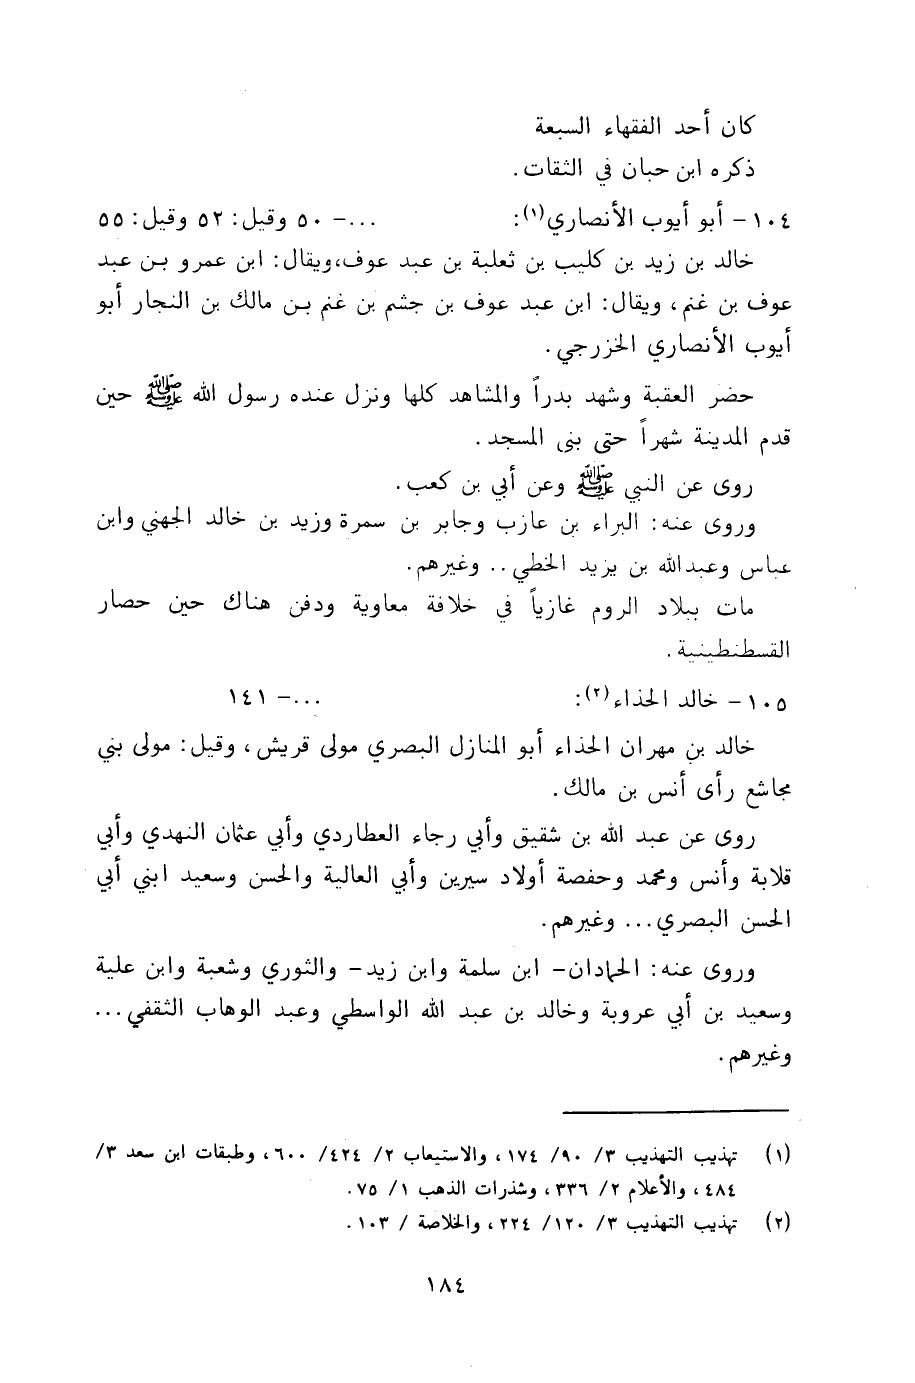 كان أحد الفقهاء السبعة
ذكره ابن حبان في الثقات.
١٠٤ - أبو أيوب الأنصاري(١): ...- ٥٠ وقيل: ٥٢ وقيل: ٥٥
خالد بن زيد بن كليب بن ثعلبة بن عبد عوف،ويقال: ابن عمرو بن عبد
عوف بن غنم، ويقال: ابن عبد عوف بن جشم بن غنم بن مالك بن النجار أبو
أيوب الأنصاري الخزرجي.
حضر العقبة وشهد بدراً والمشاهد كلها ونزل عنده رسول الله ﷺ حين
قدم المدينة شهراً حتى بنى المسجد.
روى عن النبي ﷺ وعن أبي بن كعب.
وروى عنه: البراء بن عازب وجابر بن سمرة وزيد بن خالد الجهني وابن
عباس وعبدالله بن يزيد الخطي.. وغيرهم.
مات ببلاد الروم غازياً في خلافة معاوية ودفن هناك حين حصار
القسطنطينية.
١٠٥ - خالد الحذاء(٢): ...- ١٤١
خالد بن مهران الحذاء أبو المنازل البصري مولى قريش، وقيل: مولى بني
مجاشع رأى أنس بن مالك.
روى عن عبد الله بن شقيق وأبي رجاء العطاردي وأبي عثمان النهدي وأبي
قلابة وأنس ومحمد وحفصة أولاد سيرين وأبي العالية والحسن وسعيد ابني أبي
الحسن البصري... وغيرهم.
وروى عنه: الحمادان- ابن سلمة وابن زيد- والثوري وشعبة وابن علية
وسعيد بن أبي عروبة وخالد بن عبد الله الواسطي وعبد الوهاب الثقفي...
وغيرهم.
(١) تهذيب التهذيب ٣/ ٩٠/ ١٧٤، والاستيعاب ٢/ ٤٢٤/ ٦٠٠، وطبقات ابن سعد ٣/
٤٨٤، والأعلام ٢/ ٣٣٦، وشذرات الذهب ١/ ٧٥.
(٢) تهذيب التهذيب ٣/ ١٢٠/ ٢٢٤، والخلاصة / ١٠٣.
١٨٤